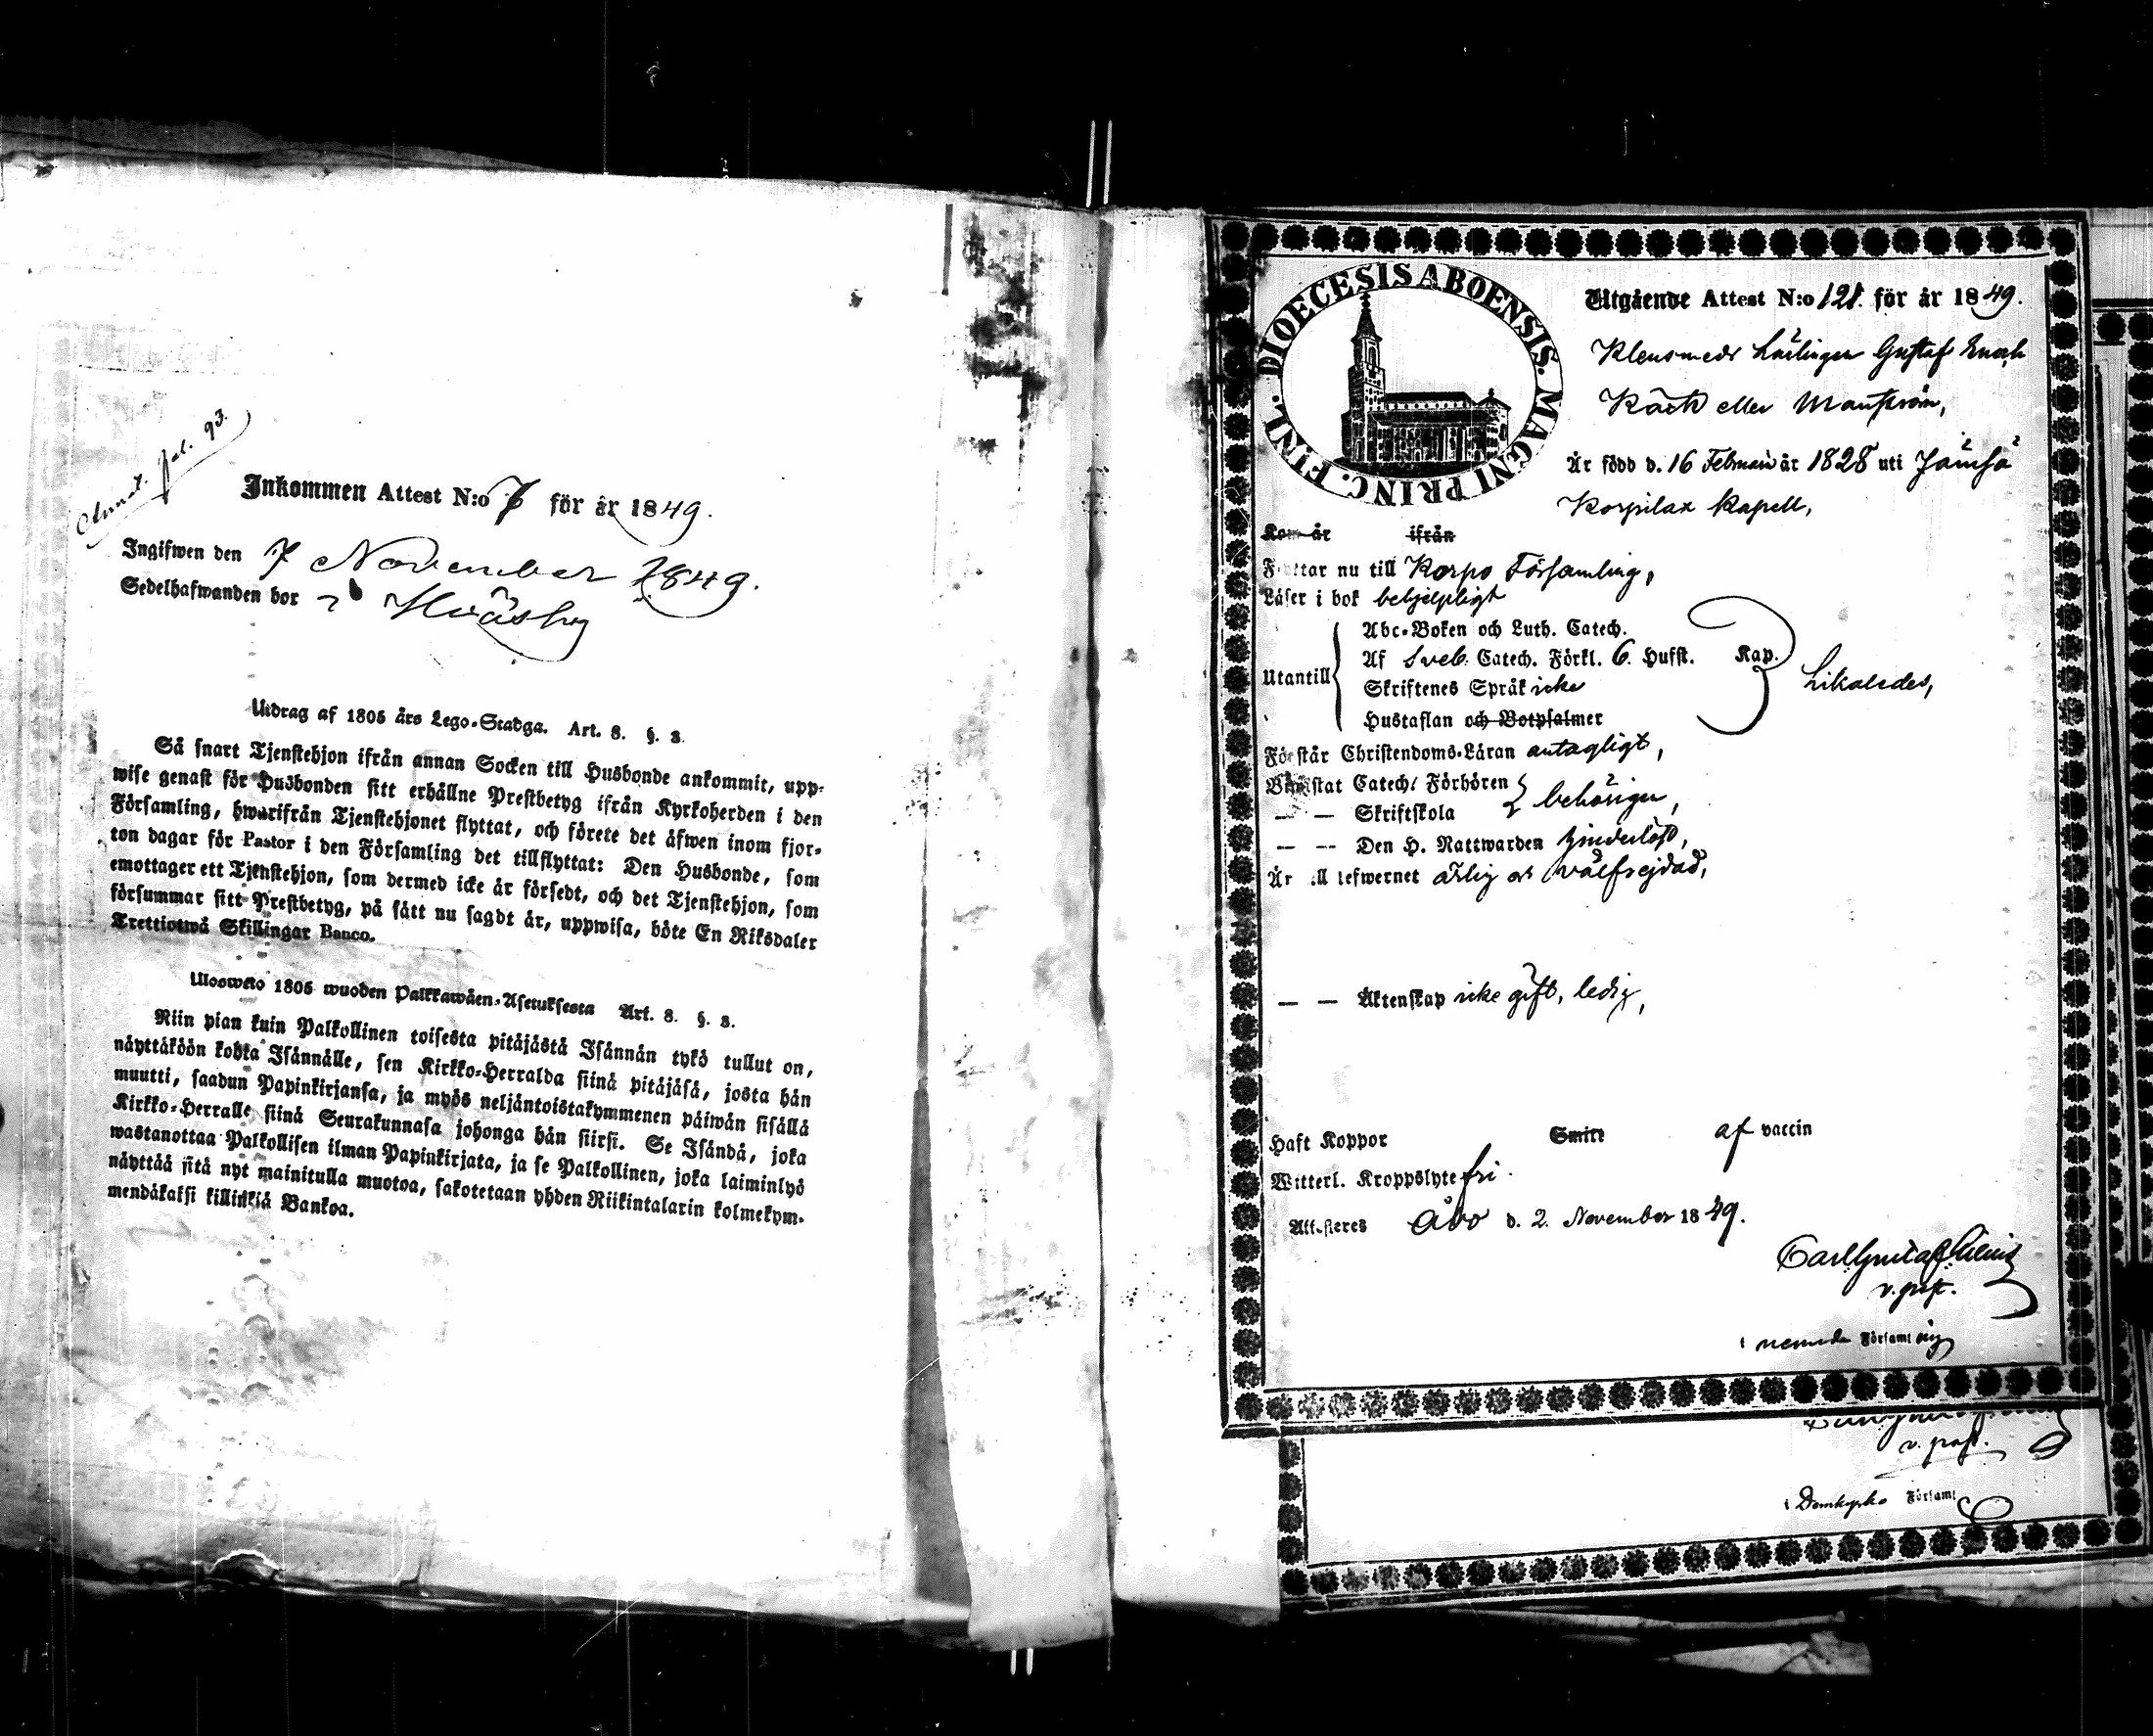 Annot. pal. 93.
Inkommen Attest N:o 7 för år 1849.
Ingifwen den 7 November 1849.
Sedelhafwanden bor i
Utdrag af 1805 års Lego-Stadga. Art. 8. §. 3.
Så snart Tjenstehjon ifrån annan Socken till Husbonde ankommit, upp-
wise genast för Husbonden sitt erhållne Prestbetyg ifrån Kyrkoherden i den
Församling, hwarifrån Tjenstehjonet flyttat, och förete det äfwen inom fjor-
ton dagar för Pastor i den Församling det tillflyttat: Den Husbonde, som
emottager ett Tjenstehjon, som dermed icke är försedt, och det Tjenstehjon, som
försummar sitt Prestbetyg, på sätt nu sagdt är, uppwisa, böte En Riksdaler
Trettiotwå Skillingar Banco.
Uloswéto 1805 wuoden Palkkawäen-Asetuksesta Art. 8. §. 3.
Niin pian kuin Palkollinen toisesta pitäjästä Isännän tykö tullut on,
näyttäköön kohta Isännälle, sen Kirkko-Herralda siinä pitäjäsä, josta hän
muutti, saadun Papinkirjansa, ja myös neljäntoistakymmenen päiwän sisällä
Kirkko-Herralle siinä Seurakunnasa johonga hän siirsi. Se Isändä, joka
wastanottaa Palkollisen ilman Papinkirjata, ja se Palkollinen, joka laiminlyö
näyttää sitä nyt mainitulla muotoa, sakotetaan yhden Riikintalarin kolmekym-
mendäkaksi killinkiä Bankoa.
DIOECESIS ABOENSIS. MAGNI PRINC. FINL.
Utgående Attest N:o 121. för år 1849.
Klensmeds Lärlingen Gustaf Enoch
eller
Är född d. 16 Februari år 1828 uti Jämsä
Korpilax Kapell,
Kom år ifrån
Flyttar nu till Korpo Församling,
Läser i bok behjelpligt
Utantill
Abc-Boken och Luth. Catech.
Af Sveb. Catech. Förkl. 6. Hufst. Kap.
Skriftenes Språk icke
Hustaflan och Botpsalmer
Likaledes,
Förstår Christendoms-Läran antagligt,
Bewistat Catech. Förhören
— — Skriftskola
behörigen,
— — Den H. Nattwarden hinderlöst,
Är till lefwernet ärlig och välfrejdad,
— — Äktenskap icke gift, ledig,
Haft Koppor Smitt af vaccin
Witterl. Kroppslyte fri.
Attesteres Åbo d. 2. November 1849.
Carl Gustaf
v. past.
i nemnda Församling
v. past.
i Domkyrko Församl